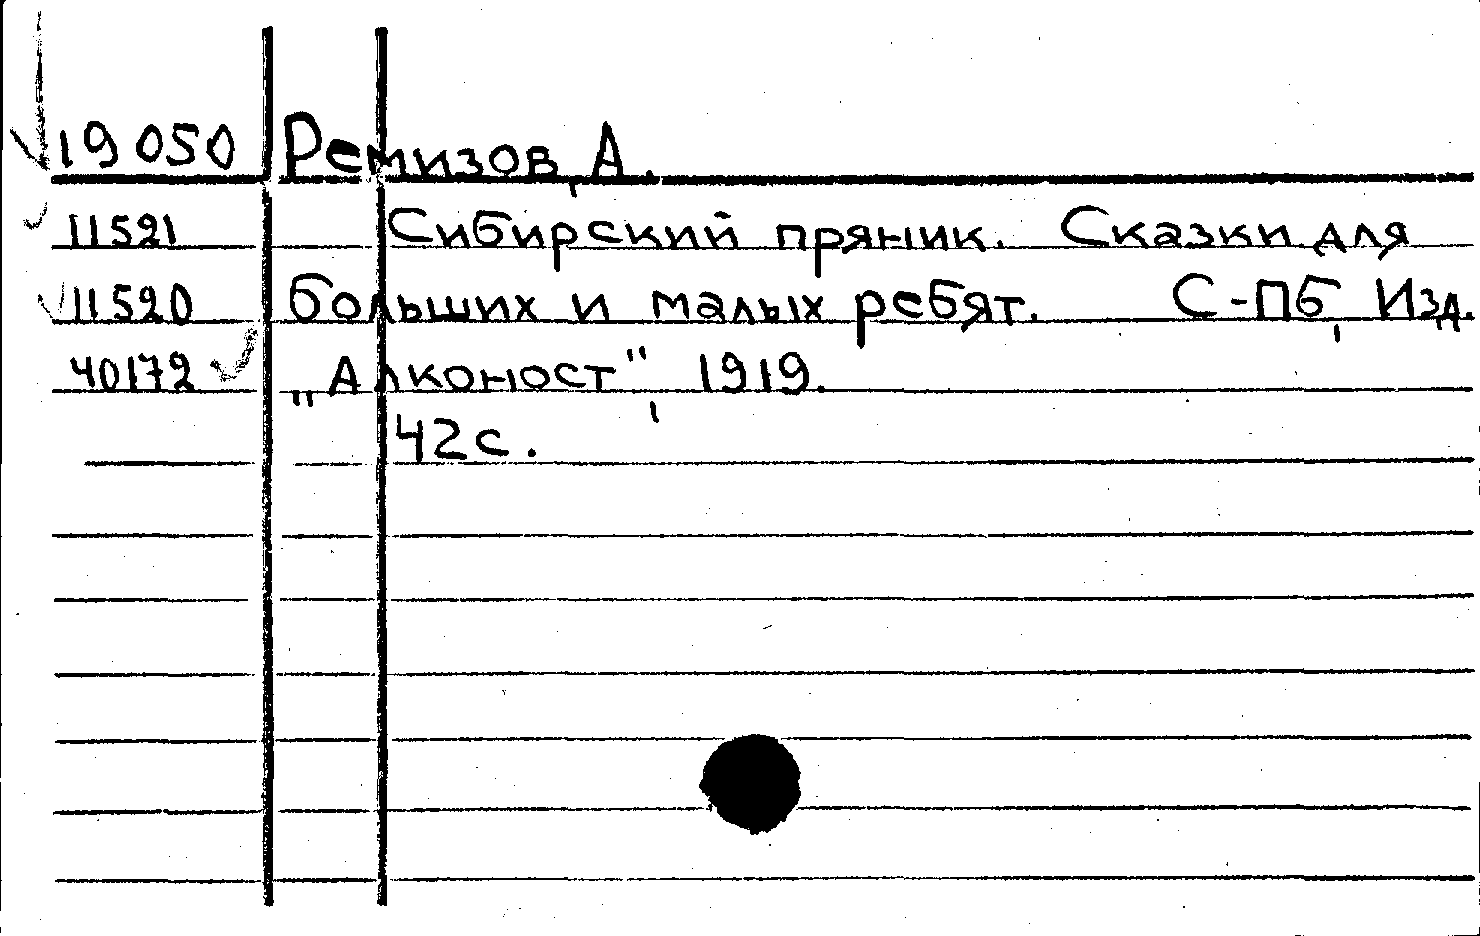 19 050 Ремизов, А.
11521 Сибирский пряник. Сказки для
11520 больших и малых ребят. С-Пб, Изд.
40172 „Алконост", 1919.
42с.